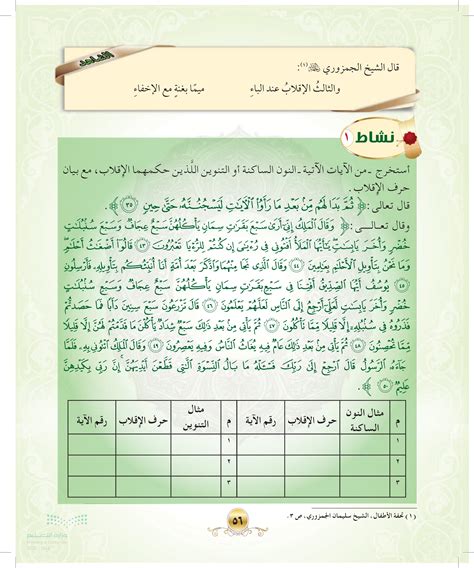 الشاهد
قال الشيخ الجمزوري (١):
والثالثُ الإقلابُ عند الباءِ ميمًا بغنةٍ مع الإخفاءِ
نشاط ١
أستخرج -من الآيات الآتية- النون الساكنة أو التنوين اللَّذين حكمهما الإقلاب، مع بيان
حرف الإقلاب.
قال تعالى: ﴿ ثُمَّ بَدَا لَهُم مِّنۢ بَعْدِ مَا رَأَوُا۟ ٱلْءَايَٰتِ لَيَسْجُنُنَّهُۥ حَتَّىٰ حِينٍ ٣٥ ﴾
وقال تعالى: ﴿ وَقَالَ ٱلْمَلِكُ إِنِّىٓ أَرَىٰ سَبْعَ بَقَرَٰتٍ سِمَانٍ يَأْكُلُهُنَّ سَبْعٌ عِجَافٌ وَسَبْعَ سُنۢبُلَٰتٍ
خُضْرٍ وَأُخَرَ يَابِسَٰتٍ يَٰٓأَيُّهَا ٱلْمَلَأُ أَفْتُونِى فِى رُءْيَٰىَ إِن كُنتُمْ لِلرُّءْيَا تَعْبُرُونَ ٤٣ قَالُوٓا۟ أَضْغَٰثُ أَحْلَٰمٍ
وَمَا نَحْنُ بِتَأْوِيلِ ٱلْأَحْلَٰمِ بِعَٰلِمِينَ ٤٤ وَقَالَ ٱلَّذِى نَجَا مِنْهُمَا وَٱدَّكَرَ بَعْدَ أُمَّةٍ أَنَا۠ أُنَبِّئُكُم بِتَأْوِيلِهِۦ فَأَرْسِلُونِ
٤٥ يُوسُفُ أَيُّهَا ٱلصِّدِّيقُ أَفْتِنَا فِى سَبْعِ بَقَرَٰتٍ سِمَانٍ يَأْكُلُهُنَّ سَبْعٌ عِجَافٌ وَسَبْعِ سُنۢبُلَٰتٍ
خُضْرٍ وَأُخَرَ يَابِسَٰتٍ لَّعَلِّىٓ أَرْجِعُ إِلَى ٱلنَّاسِ لَعَلَّهُمْ يَعْلَمُونَ ٤٦ قَالَ تَزْرَعُونَ سَبْعَ سِنِينَ دَأَبًا فَمَا حَصَدتُّمْ
فَذَرُوهُ فِى سُنۢبُلِهِۦٓ إِلَّا قَلِيلًا مِّمَّا تَأْكُلُونَ ٤٧ ثُمَّ يَأْتِى مِنۢ بَعْدِ ذَٰلِكَ سَبْعٌ شِدَادٌ يَأْكُلْنَ مَا قَدَّمْتُمْ لَهُنَّ إِلَّا قَلِيلًا
مِّمَّا تُحْصِنُونَ ٤٨ ثُمَّ يَأْتِى مِنۢ بَعْدِ ذَٰلِكَ عَامٌ فِيهِ يُغَاثُ ٱلنَّاسُ وَفِيهِ يَعْصِرُونَ ٤٩ وَقَالَ ٱلْمَلِكُ ٱئْتُونِى بِهِۦ فَلَمَّا
جَآءَهُ ٱلرَّسُولُ قَالَ ٱرْجِعْ إِلَىٰ رَبِّكَ فَسْـَٔلْهُ مَا بَالُ ٱلنِّسْوَةِ ٱلَّٰتِى قَطَّعْنَ أَيْدِيَهُنَّ إِنَّ رَبِّى بِكَيْدِهِنَّ
عَلِيمٌ ٥٠ ﴾
م مثال النون الساكنة حرف الإقلاب رقم الآية م مثال التنوين حرف الإقلاب رقم الآية
١ ١
٢ ٢
٣ ٣
(١) تحفة الأطفال، الشيخ سليمان الجمزوري، ص ٣.
٥٦
وزارة التعليم